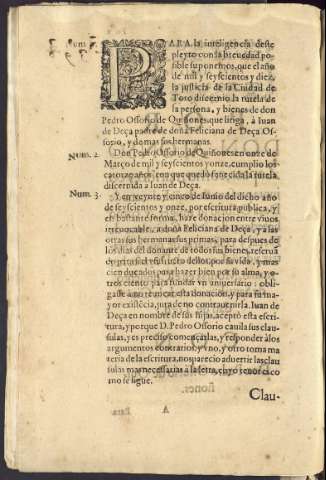 PARA la inteligencia deste
pleyto con la breuedad po-
sible suponemos, que el año
de mil y seyscientos y diez,
la justicia de la Ciudad de
Toro discernio la tutela de
la persona, y bienes de don
Pedro Ossorio de Quiñones, que litiga, à Iuan
de Deça padre de doña Feliciana de Deça Os-
sorio, y demas sus hermanas.
Num. 2.
Don Pedro Ossorio de Quiñones en onze de
Março de mil y seyscientos y onze, cumplio los
catorze años, con que quedò fenecida la tutela
discernida a Iuan de Deça.
Num. 3.
Y en veynte y cinco de Iunio del dicho año
de seyscientos y onze, por escritura publica, y
en bastante forma, haze donacion entre viuos
irreuocable, a doña Feliciana de Deça, y a las
otras sus hermanas sus primas, para despues de
los dias del donante de todos sus bienes, reserua
el vsufructo dellos, por su vida, y mas
cien ducados para hazer bien por su alma, y o-
tros ciento para fundar vn aniuersario: obli-
gase à no reuocar esta donacion, y para su ma-
yor existẽcia, jura de no contrauenirla. Iuan de
Deça en nombre de sus hijas, aceptò esta escri-
tura, y porque D. Pedro Ossorio cauila sus clau-
sulas, y es preciso começarlas, y responder à los
argumentos contrarios, y vno, y otro toma ma
teria de la escritura, nos parecio aduertir las clau
sulas mas necessarias a la letra, cuyo tenor es co
mo se sigue.
Clau-
A